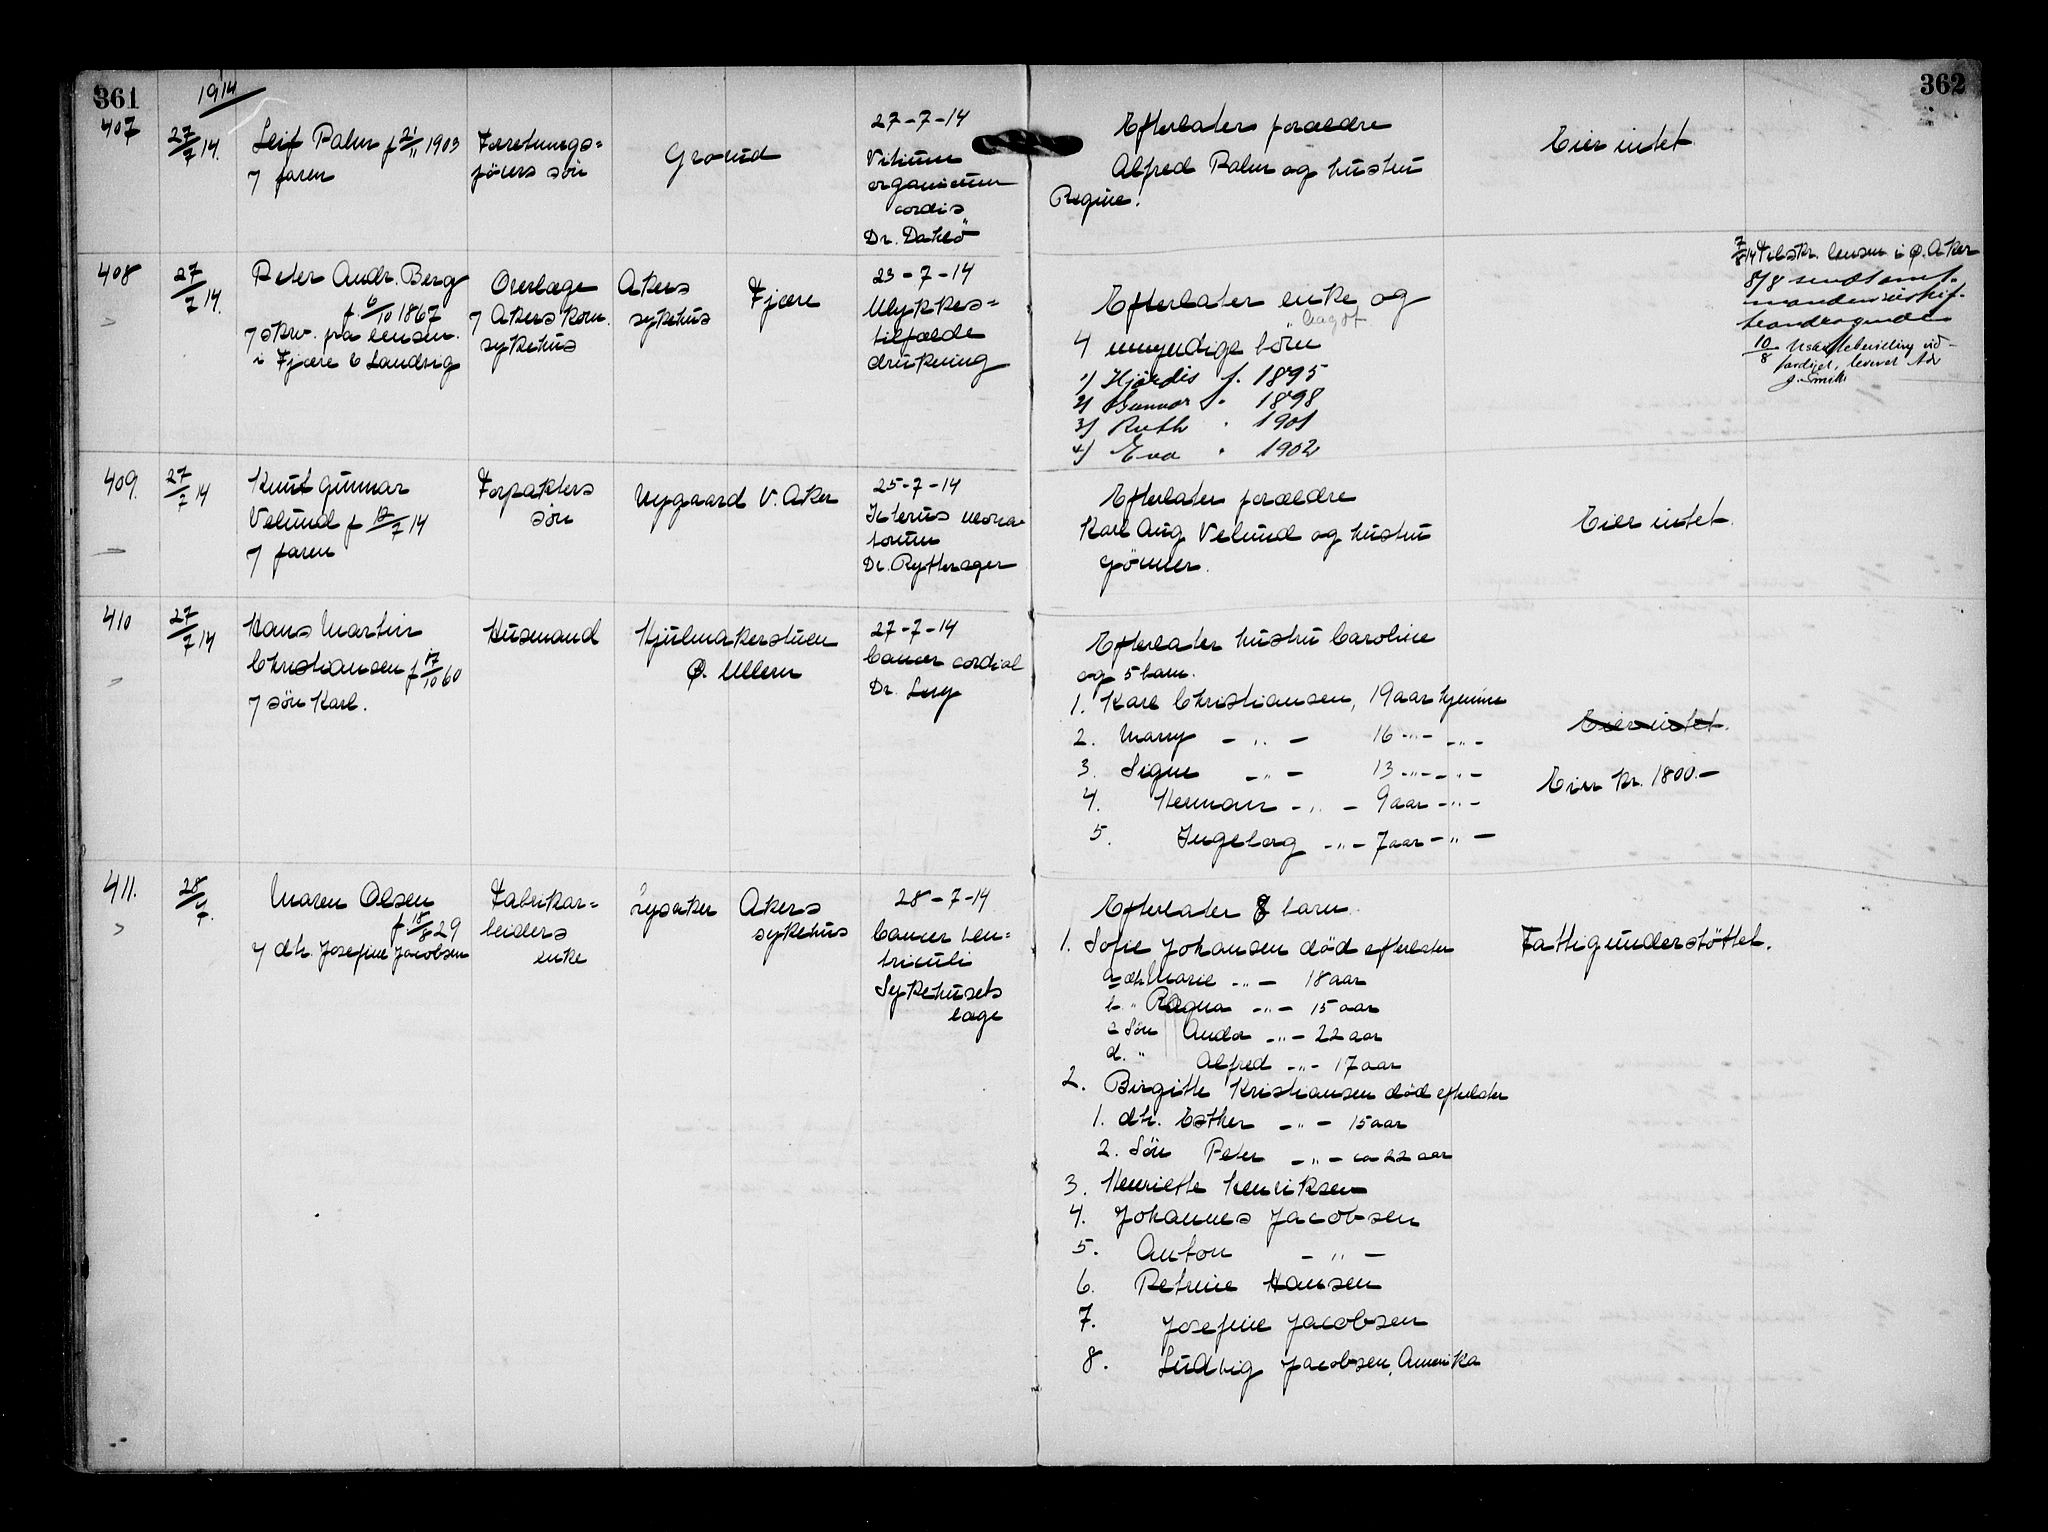 361
362
1914
407
27/7 14.
Leif Palm f 21/11 1903
7 faren
Forretnings=
førers søn
Grorud
27-7-14
Vitium
organicum
cordis
Dr. Dahlö
Efterlater forældre
Alfred Palm og hustru
Regine.
Eier intet
408
27/7 14.
Peter Andr. Berg
f 6/10 1867
7 skr. fra lensm.
i Fjære b Landvig
Overlæge
7 Akers kom.
sykehus
Akers
sykehus
Fjære
23-7-14
Ulykkes=
tilfælde
drukning
Efterlater enke og
4 umyndige børn
1) Hjørdis f. 1895
2) Gunvor " 1898
3) Ruth " 1901
4) Eva " 1902
7/8 14 Tilskr. lensm i Ø. Aker
8/8 sendt
10/8
409.
27/7 14
Knut Gunnar
Velund f 12/7 14
7 faren
Forpakters
søn
Nygaard V. Aker
25-7-14
Icterus neona-
torum
Dr. Rytterager
Efterlater forældre
Karl Aug Velund og hustru
Eier intet.
410
27/7 14
Hans Martin
Christiansen f 17/10 60
7 søn Karl.
Husmand
Hjulmakerstuen
Ø. Ullern
27-7-14
Cancer cordial
Dr. Lny
Efterlater hustru Caroline
og 5 barn.
1. Karl Christiansen, 19 aar hjemme
2. Marry - " - 16 - " - - " -
3. Signe - " - 13 - " - - " -
4. Herman - " - 9 aar - " -
5. Ingeborg - " - 7 aar - " -
Eier intet.
Eier Kr. 1800.-
411.
28/7.
Maren Olsen
f. 18/8 29
7 dtr. Josefine Jacobsen
Fabrikar=
beiders
enke
Lysaker
Akers
sykehus
28-7-14
Cancer ven=
triculi
Sykehusets
læge
Efterlater 8 barn.
1. Sofie Johansen død efterlater
a dtr Marie - " - 18 aar
b. " Ragna - " - 15 aar
c Søn Andor - " - 22 aar
d. " Alfred - " - 17 aar
2. Birgitte Kristiansen død efterlater
1. dtr. Esther - " - 15 aar
2. Søn Peter - " - ca 22 aar
3. Henriette Henriksen
4. Johannes Jacobsen
5. Anton - " -
6. Petrine Hansen
7. Josefine Jacobsen
8. Ludvig Jacobsen, Amerika
Fattigunderstøttet.